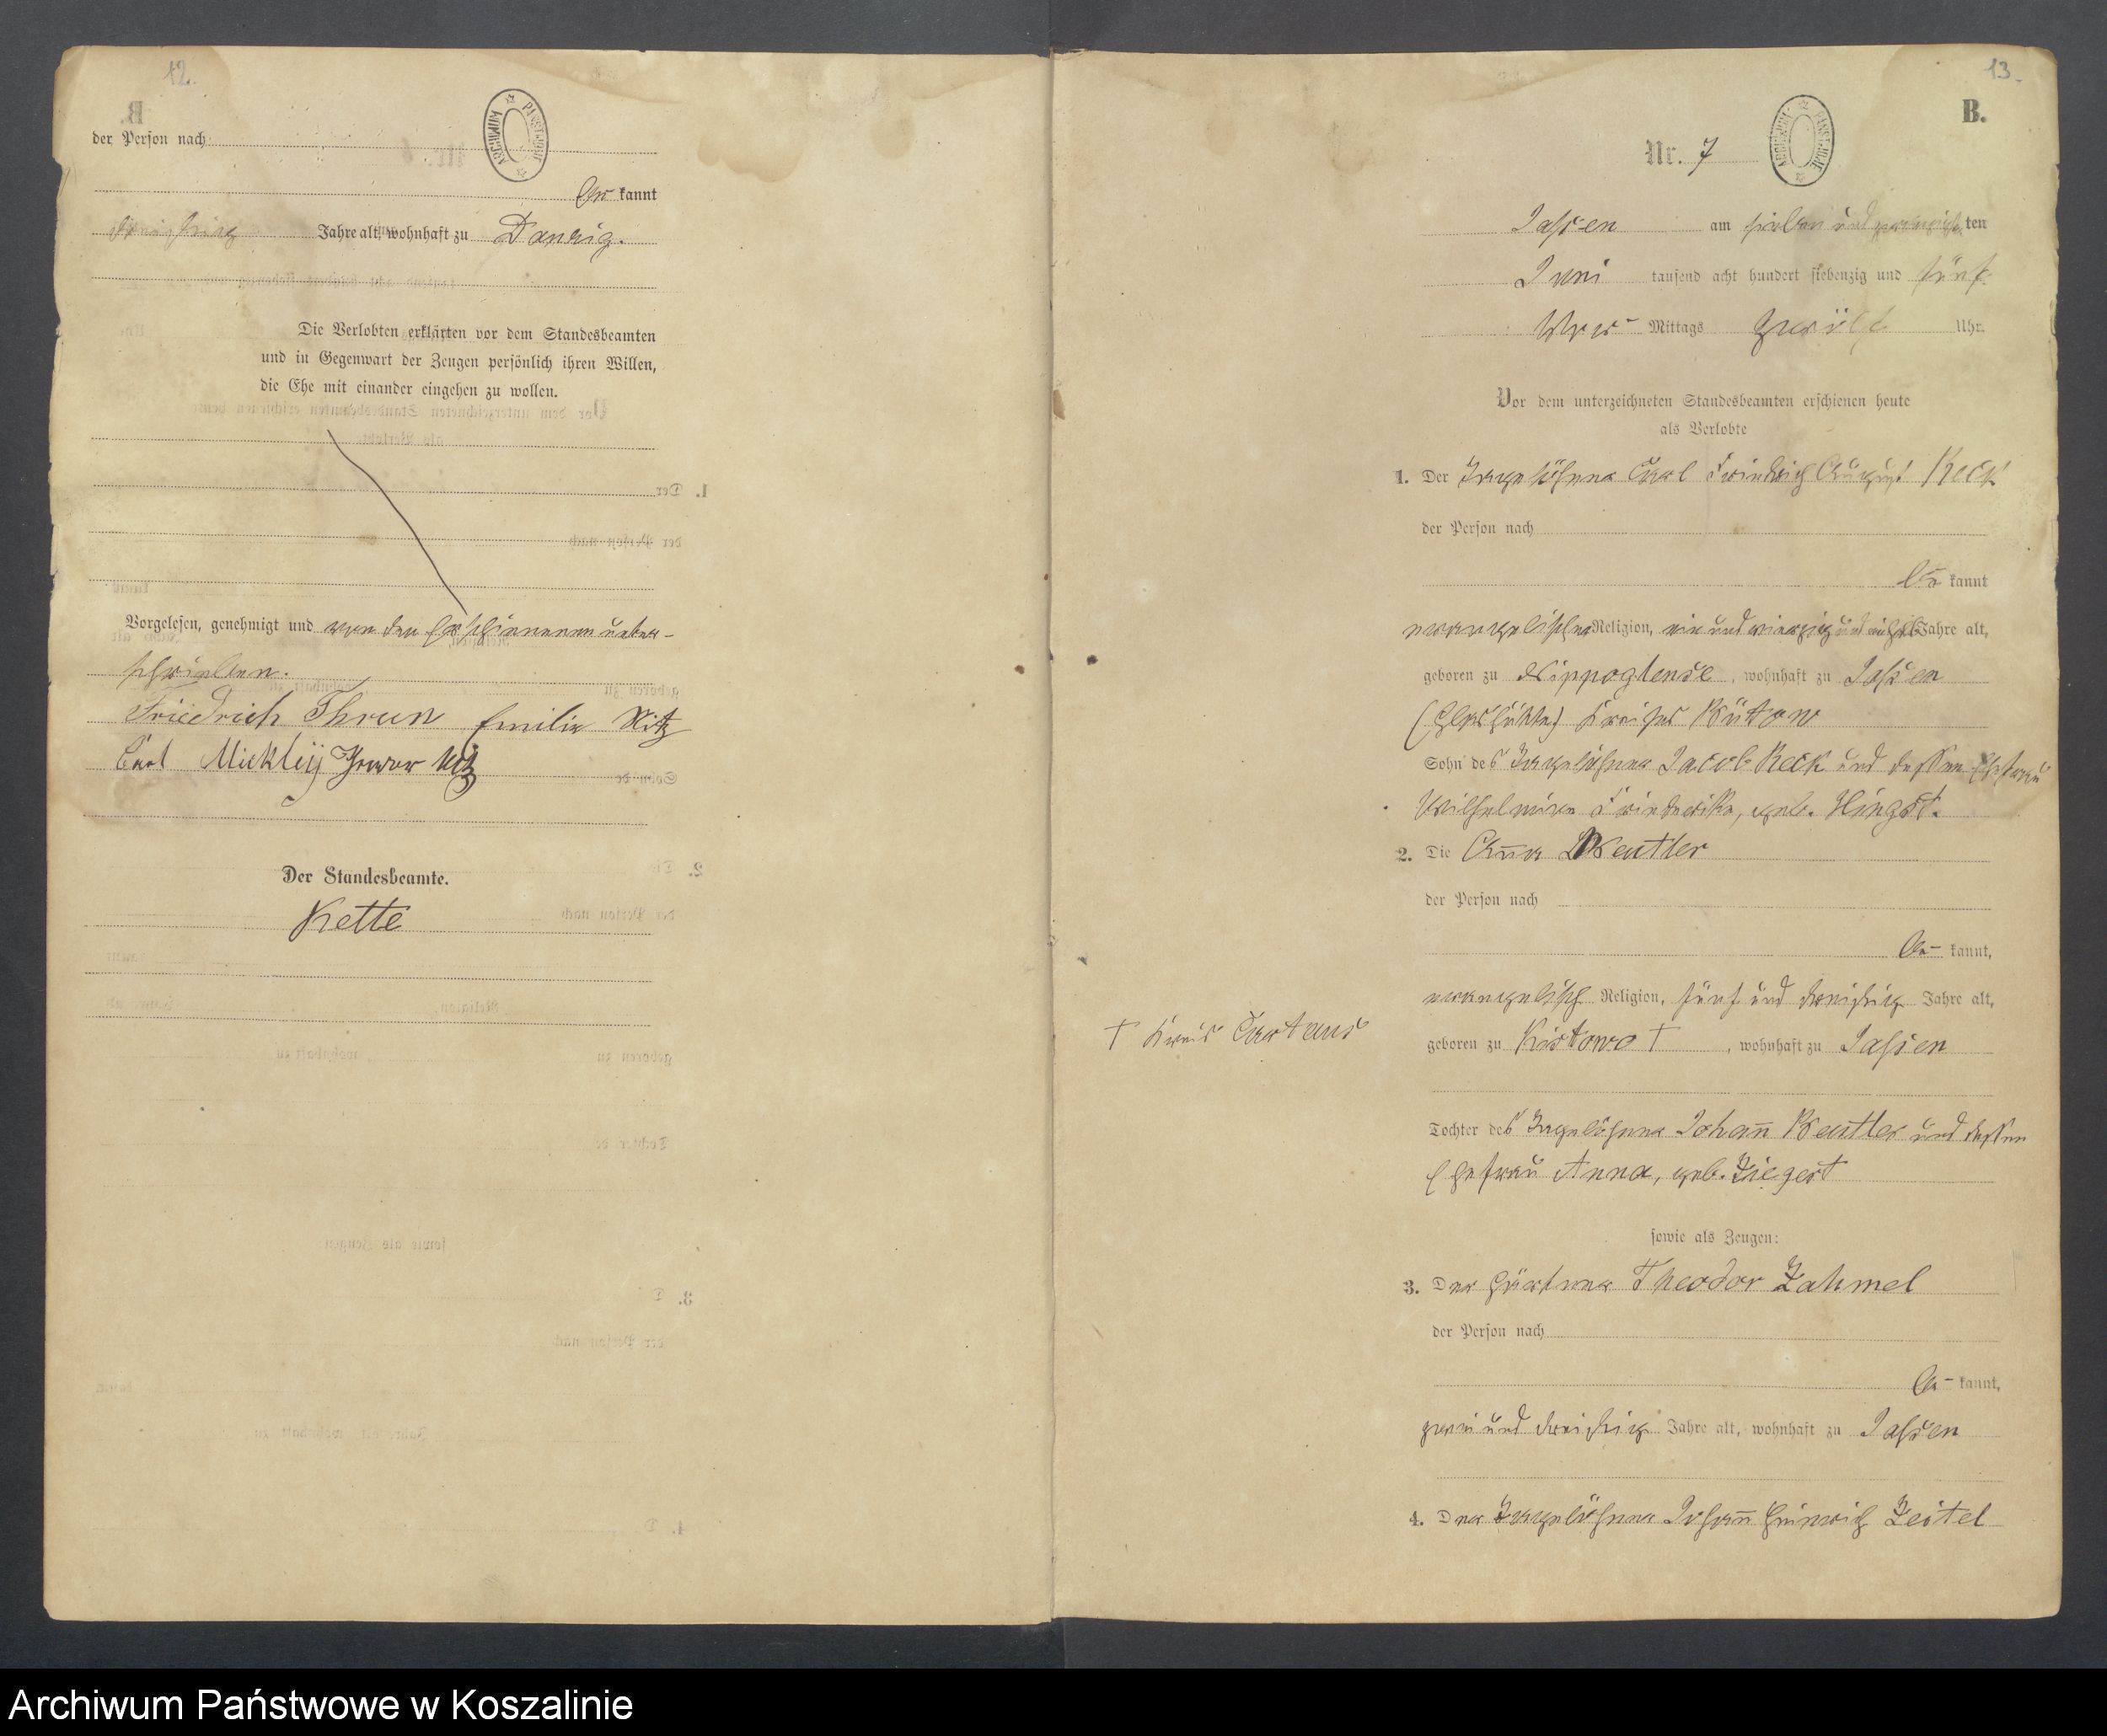 12.
der Person nach
be kannt
dreißig Jahre alt, wohnhaft zu Danzig.
Die Verlobten erklärten vor dem Standesbeamten
und in Gegenwart der Zeugen persönlich ihren Willen,
die Ehe mit einander eingehen zu wollen.
Vorgelesen, genehmigt und von den Erschienenen unter-
schrieben.
Friedrich Thrun Emilie Nitz
Carl Mickley Nitz
Der Standesbeamte.
Kette
13.
B.
ARCHIWUM PAŃSTWOWE
Nr. 7
Jassen am sieben und zwanzigsten
Juni tausend acht hundert siebenzig und fünf
Vor Mittags zwölf Uhr.
Vor dem unterzeichneten Standesbeamten erschienen heute
als Verlobte
1. Der Tagelöhner Carl Friedrich August Reck
der Person nach
be kannt
evangelischer Religion, ein und vierzig und Jahre alt,
geboren zu Nippoglense, wohnhaft zu Jassen
Kreises Bütow
Sohn des Tagelöhner Jacob Reck und dessen Ehefrau
Wilhelmine Friederike, geb. Hingst.
2. Die Anna Beutler
der Person nach
be kannt,
evangelisch Religion, fünf und dreißig Jahre alt,
† Kreis Cartaus
geboren zu Kistowo †, wohnhaft zu Jassen
Tochter des Tagelöhner Johann Beutler und dessen
Ehefrau Anna, geb. Ziegert
sowie als Zeugen:
3. Der Gärtner Theodor Zahmel
der Person nach
be kannt,
zwei und dreißig Jahre alt, wohnhaft zu Jassen
4. Der Tagelöhner Johann Heinrich Zeitel
Archiwum Państwowe w Koszalinie